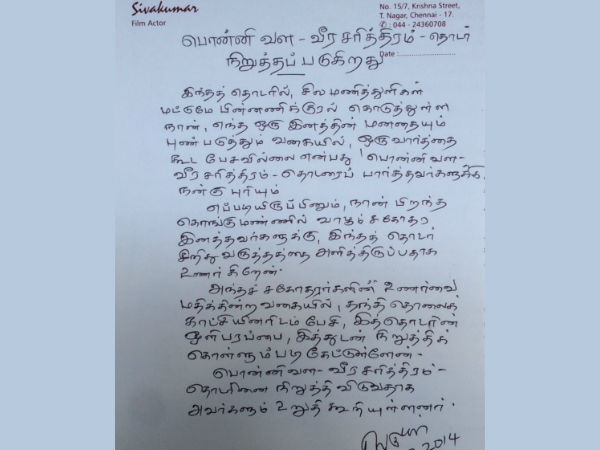 Sivakumar
Film Actor
No. 15/7, Krishna Street,
T. Nagar, Chennai - 17.
✆ : 044 - 24360708
Date :
பொன்னி வள - வீர சரித்திரம் - தொடர்
நிறுத்தப் படுகிறது
இந்தத் தொடரில், சில மணித்துளிகள்
மட்டுமே பின்னணிக்குரல் கொடுத்துள்ள
நான், எந்த ஒரு இனத்தின் மனதையும்
புண்படுத்தும் வகையில், ஒரு வார்த்தை
கூட பேசவில்லை என்பது 'பொன்னி வள -
வீர சரித்திரம் - தொடரைப் பார்த்தவர்களுக்கு
நன்கு புரியும்
எப்படியிருப்பினும், நான் பிறந்த
கொங்கு மண்ணில் வாழும் சகோதர
இனத்தவர்களுக்கு, இந்தத் தொடர்
சிறிது வருத்தத்தை அளித்திருப்பதாக
உணர்கிறேன்.
அந்தச் சகோதரர்களின் உணர்வை
மதிக்கின்ற வகையில், தந்தி தொலைக்
காட்சியினரிடம் பேசி, இத்தொடரின்
ஒளிபரப்பை, இத்துடன் நிறுத்திக்
கொள்ளும்படி கேட்டுள்ளேன் -
பொன்னி வள - வீர சரித்திரம் -
தொடரினை நிறுத்தி விடுவதாக
அவர்களும் உறுதி கூறியுள்ளனர்.
2014